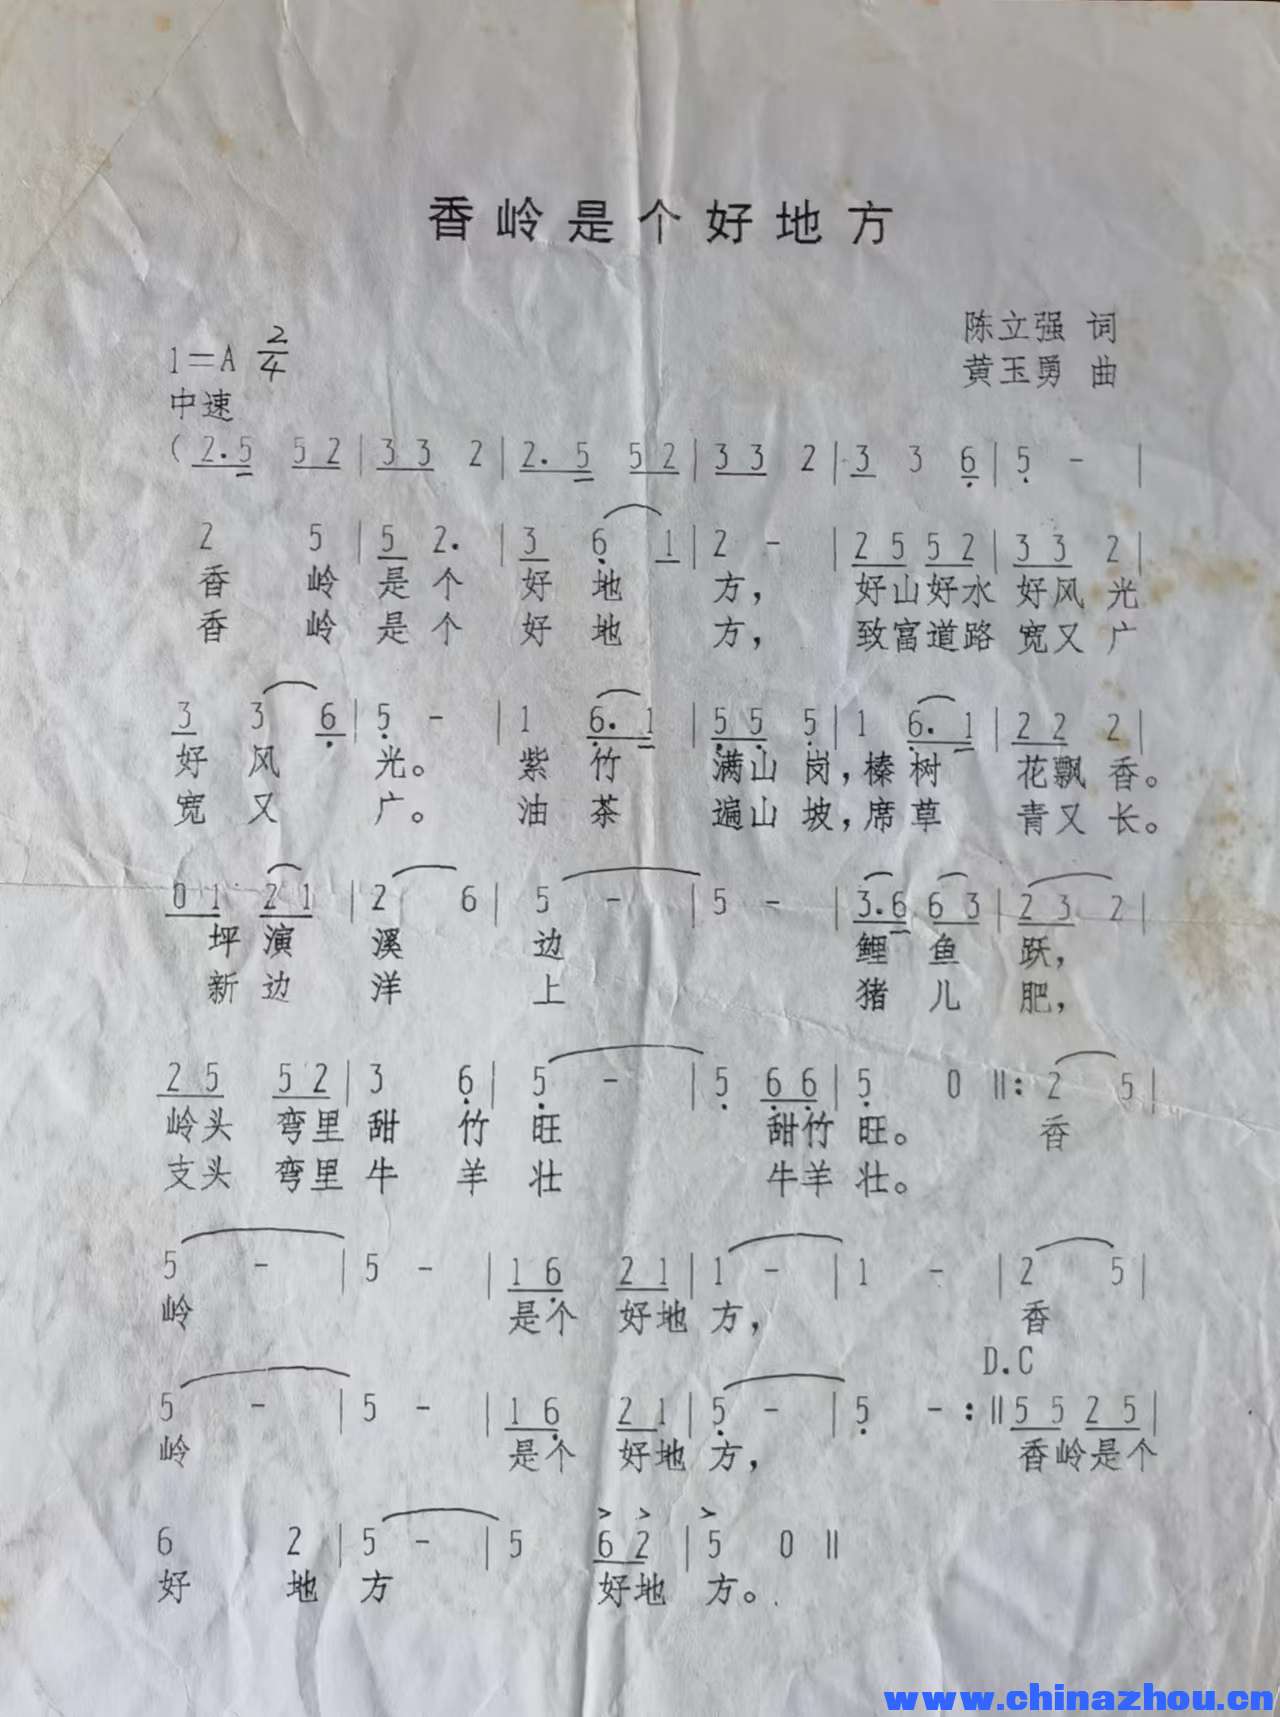 香岭是个好地方
陈立强 词
1=A 2/4
黄玉勇 曲
中速
( 2.5 5 2 | 3 3 2 | 2. 5 5 2 | 3 3 2 | 3 3 6 | 5 - |
2 5 | 5 2. | 3 6 1 | 2 - | 2 5 5 2 | 3 3 2 |
香 岭 是 个 好 地 方， 好山好水 好风 光
香 岭 是 个 好 地 方， 致富道路 宽又 广
3 3 6 | 5 - | 1 6. 1 | 5 5 5 | 1 6. 1 | 2 2 2 |
好 风 光。 紫 竹 满山 岗，榛 树 花飘 香。
宽 又 广。 油 茶 遍山 坡，席 草 青又 长。
0 1 2 1 | 2 6 | 5 - | 5 - | 3.6 6 3 | 2 3 2 |
坪 演 溪 边 鲤 鱼 跃，
新 边 洋 上 猪 儿 肥，
2 5 5 2 | 3 6 | 5 - | 5 6 6 | 5 0 ‖: 2 5 |
岭头 弯里 甜 竹 旺 甜竹 旺。 香
支头 弯里 牛 羊 壮 牛羊 壮。
5 - | 5 - | 1 6 2 1 | 1 - | 1 - | 2 5 |
岭 是个 好地 方， 香
D.C
5 - | 5 - | 1 6 2 1 | 5 - | 5 - :‖ 5 5 2 5 |
岭 是个 好地 方， 香岭是个
> > >
6 2 | 5 - | 5 6 2 | 5 0 ‖
好 地 方 好地 方。
www.chinazhou.cn